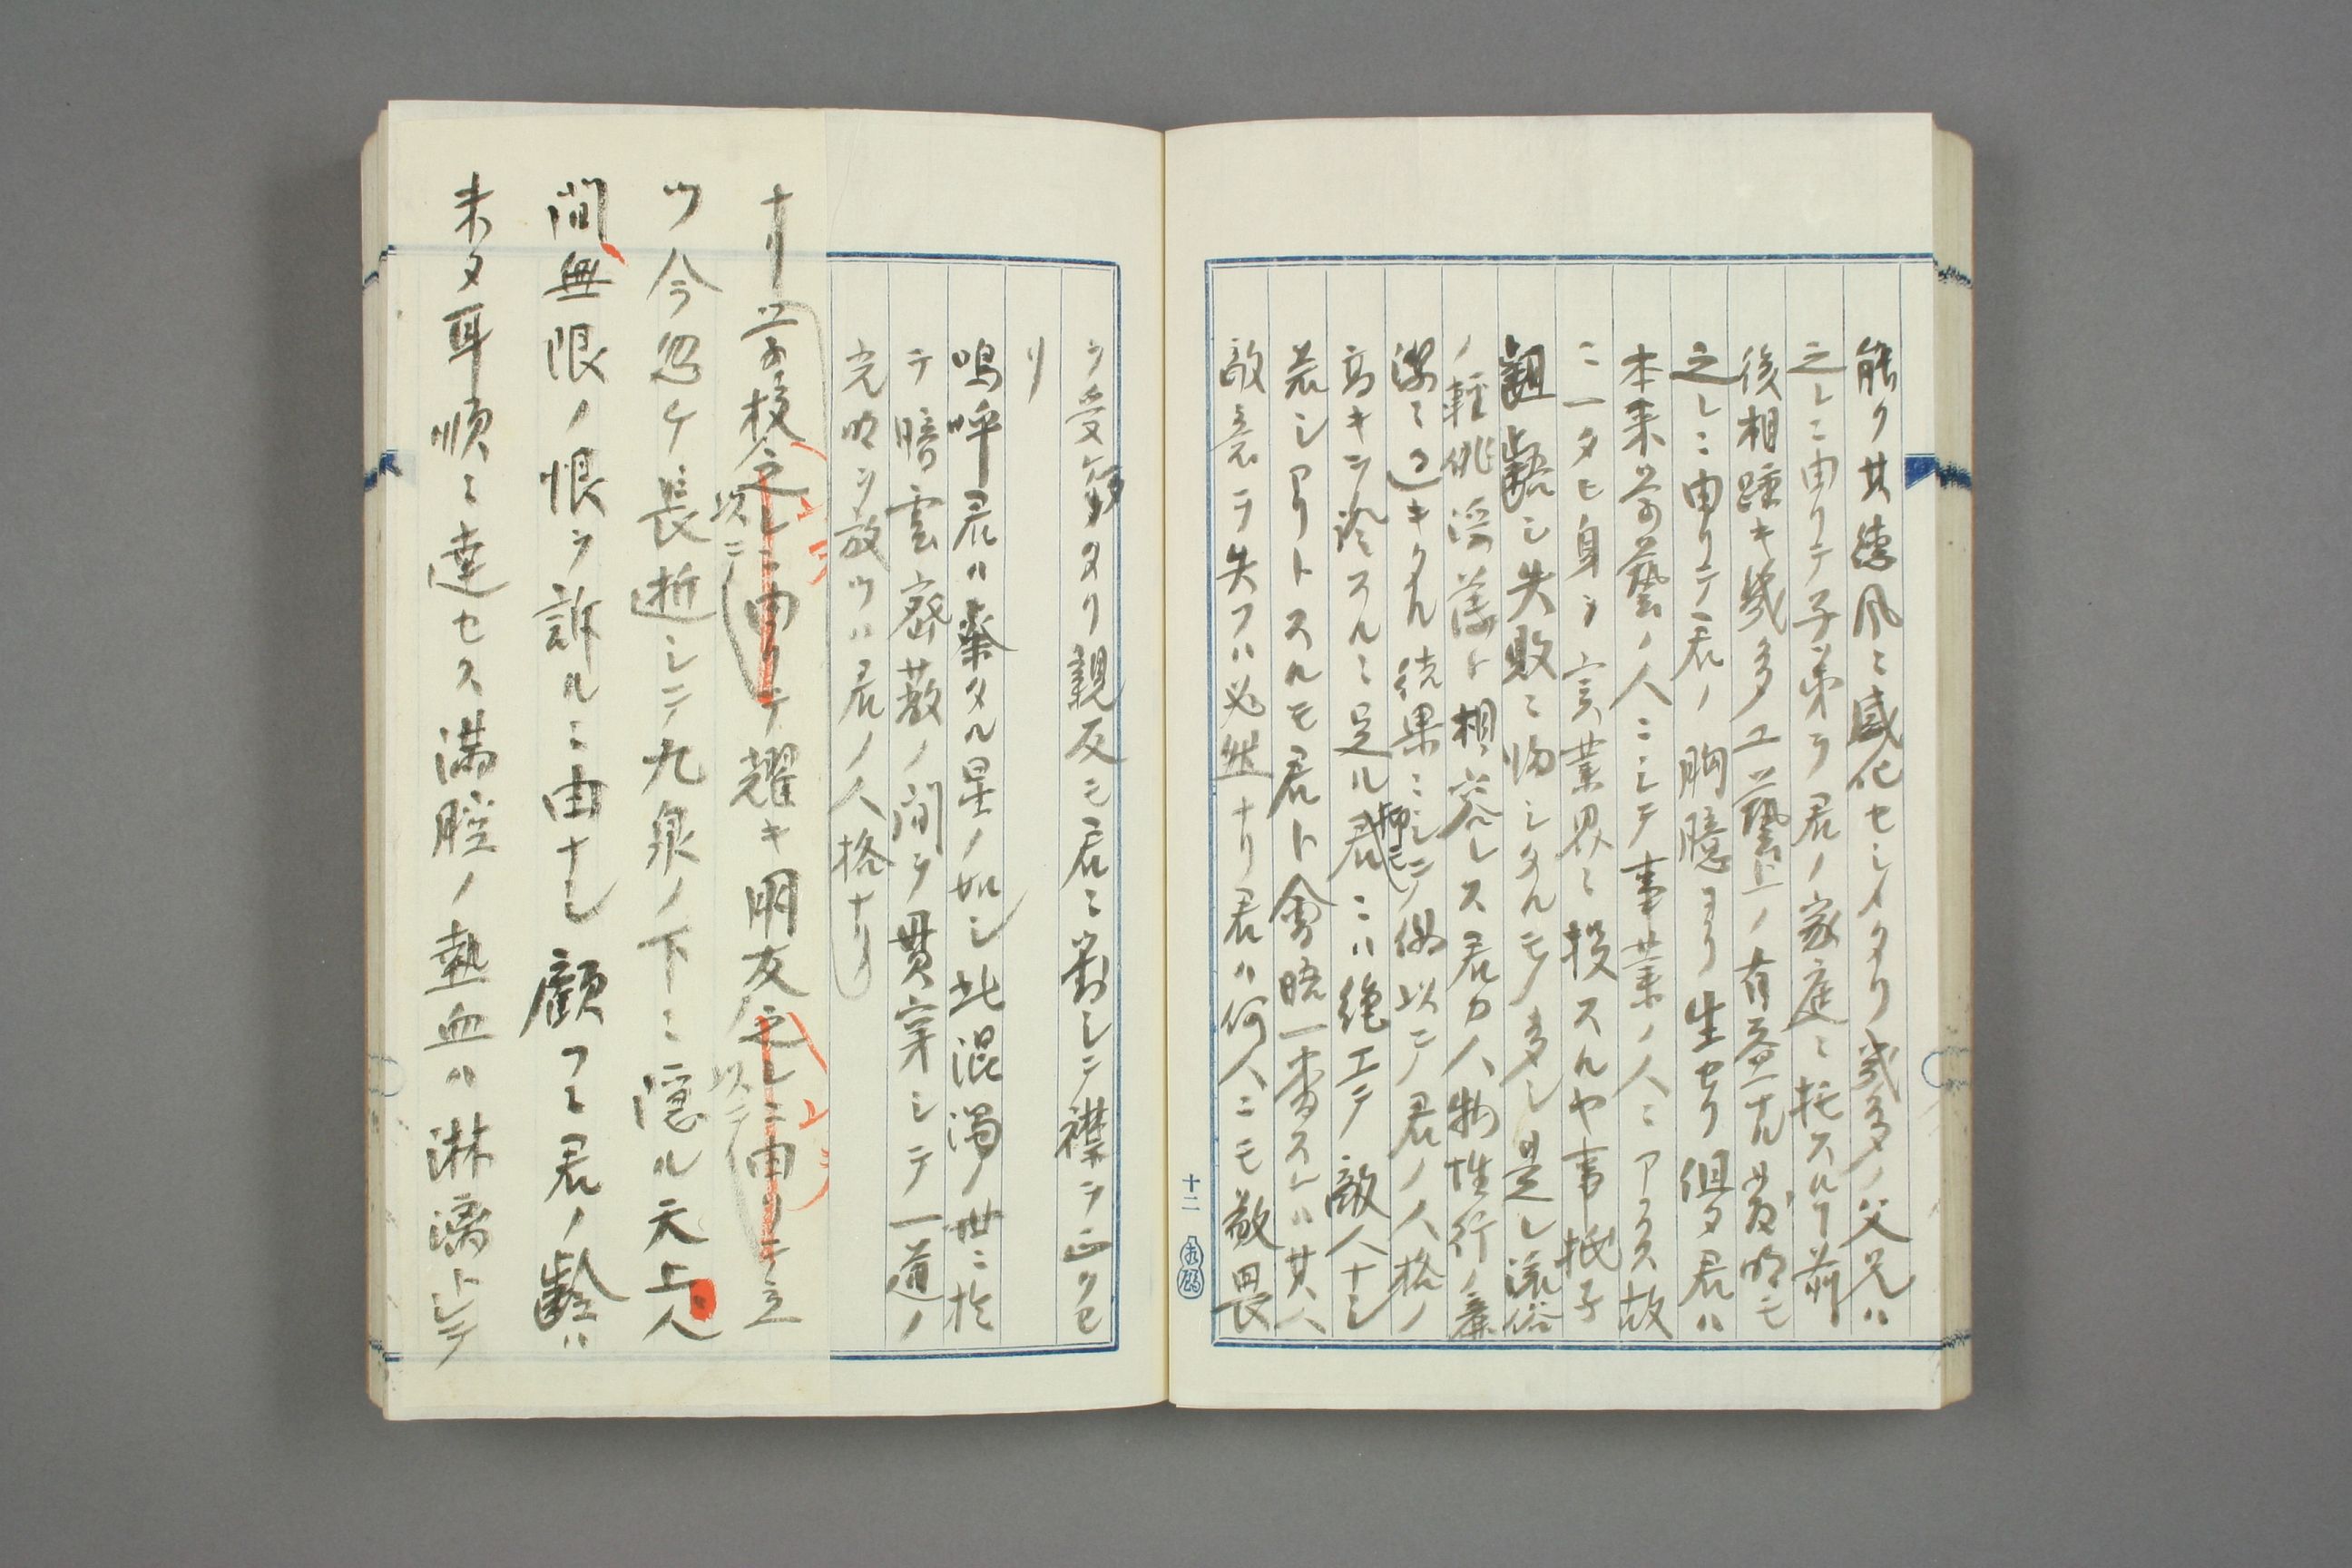 能ク其徳風ニ感化セシメタリ幾多ノ父兄ハ
之レニ由リテ子弟ヲ君ノ家庭ニ托スルヿ前
後相踵キ幾多工藝上ノ有益ナル発明モ
之レニ由リテ君ノ胸臆ヨリ生セリ但タ君ハ
本来学藝ノ人ニシテ事業ノ人ニアラス故
ニ一タヒ身ヲ実業界ニ投スルヤ事抵牙
齟齬シ失敗ニ帰シタルモノ多シ是レ流俗
ノ軽佻浮薄ト相容レス君カ人物性行ノ廉
潔ニ過キタル結果ニシテ偶以テ君ノ人格ノ
高キヲ証スルニ足ル君ニハ絶エテ敵人ナシ
若シアリトスルモ君ト会晤一番スレハ其人
敵意ヲ失フハ必然ナリ君ハ何人ニモ敬畏
十二
ヲ受ケタリ親友モ君ニ対シテ襟ヲ正クセ
リ
嗚呼君ハ粲タル星ノ如シ此混濁ノ世ニ於
テ暗雲密蔽ノ間ヲ貫穿シテ一道ノ
光明ヲ放ツハ君ノ人格ナリ
ナリ学校之レニ由リテ耀キ朋友之レニ由リテ立
以テ
以テ
ツ今忽ケ長逝シテ九泉ノ下ニ隠ル天上人
間無限ノ恨ヲ訴ルニ由ナシ顧フニ君ノ齢ハ
未タ耳順ニ達セス満腔ノ熱血ハ淋漓トシテ